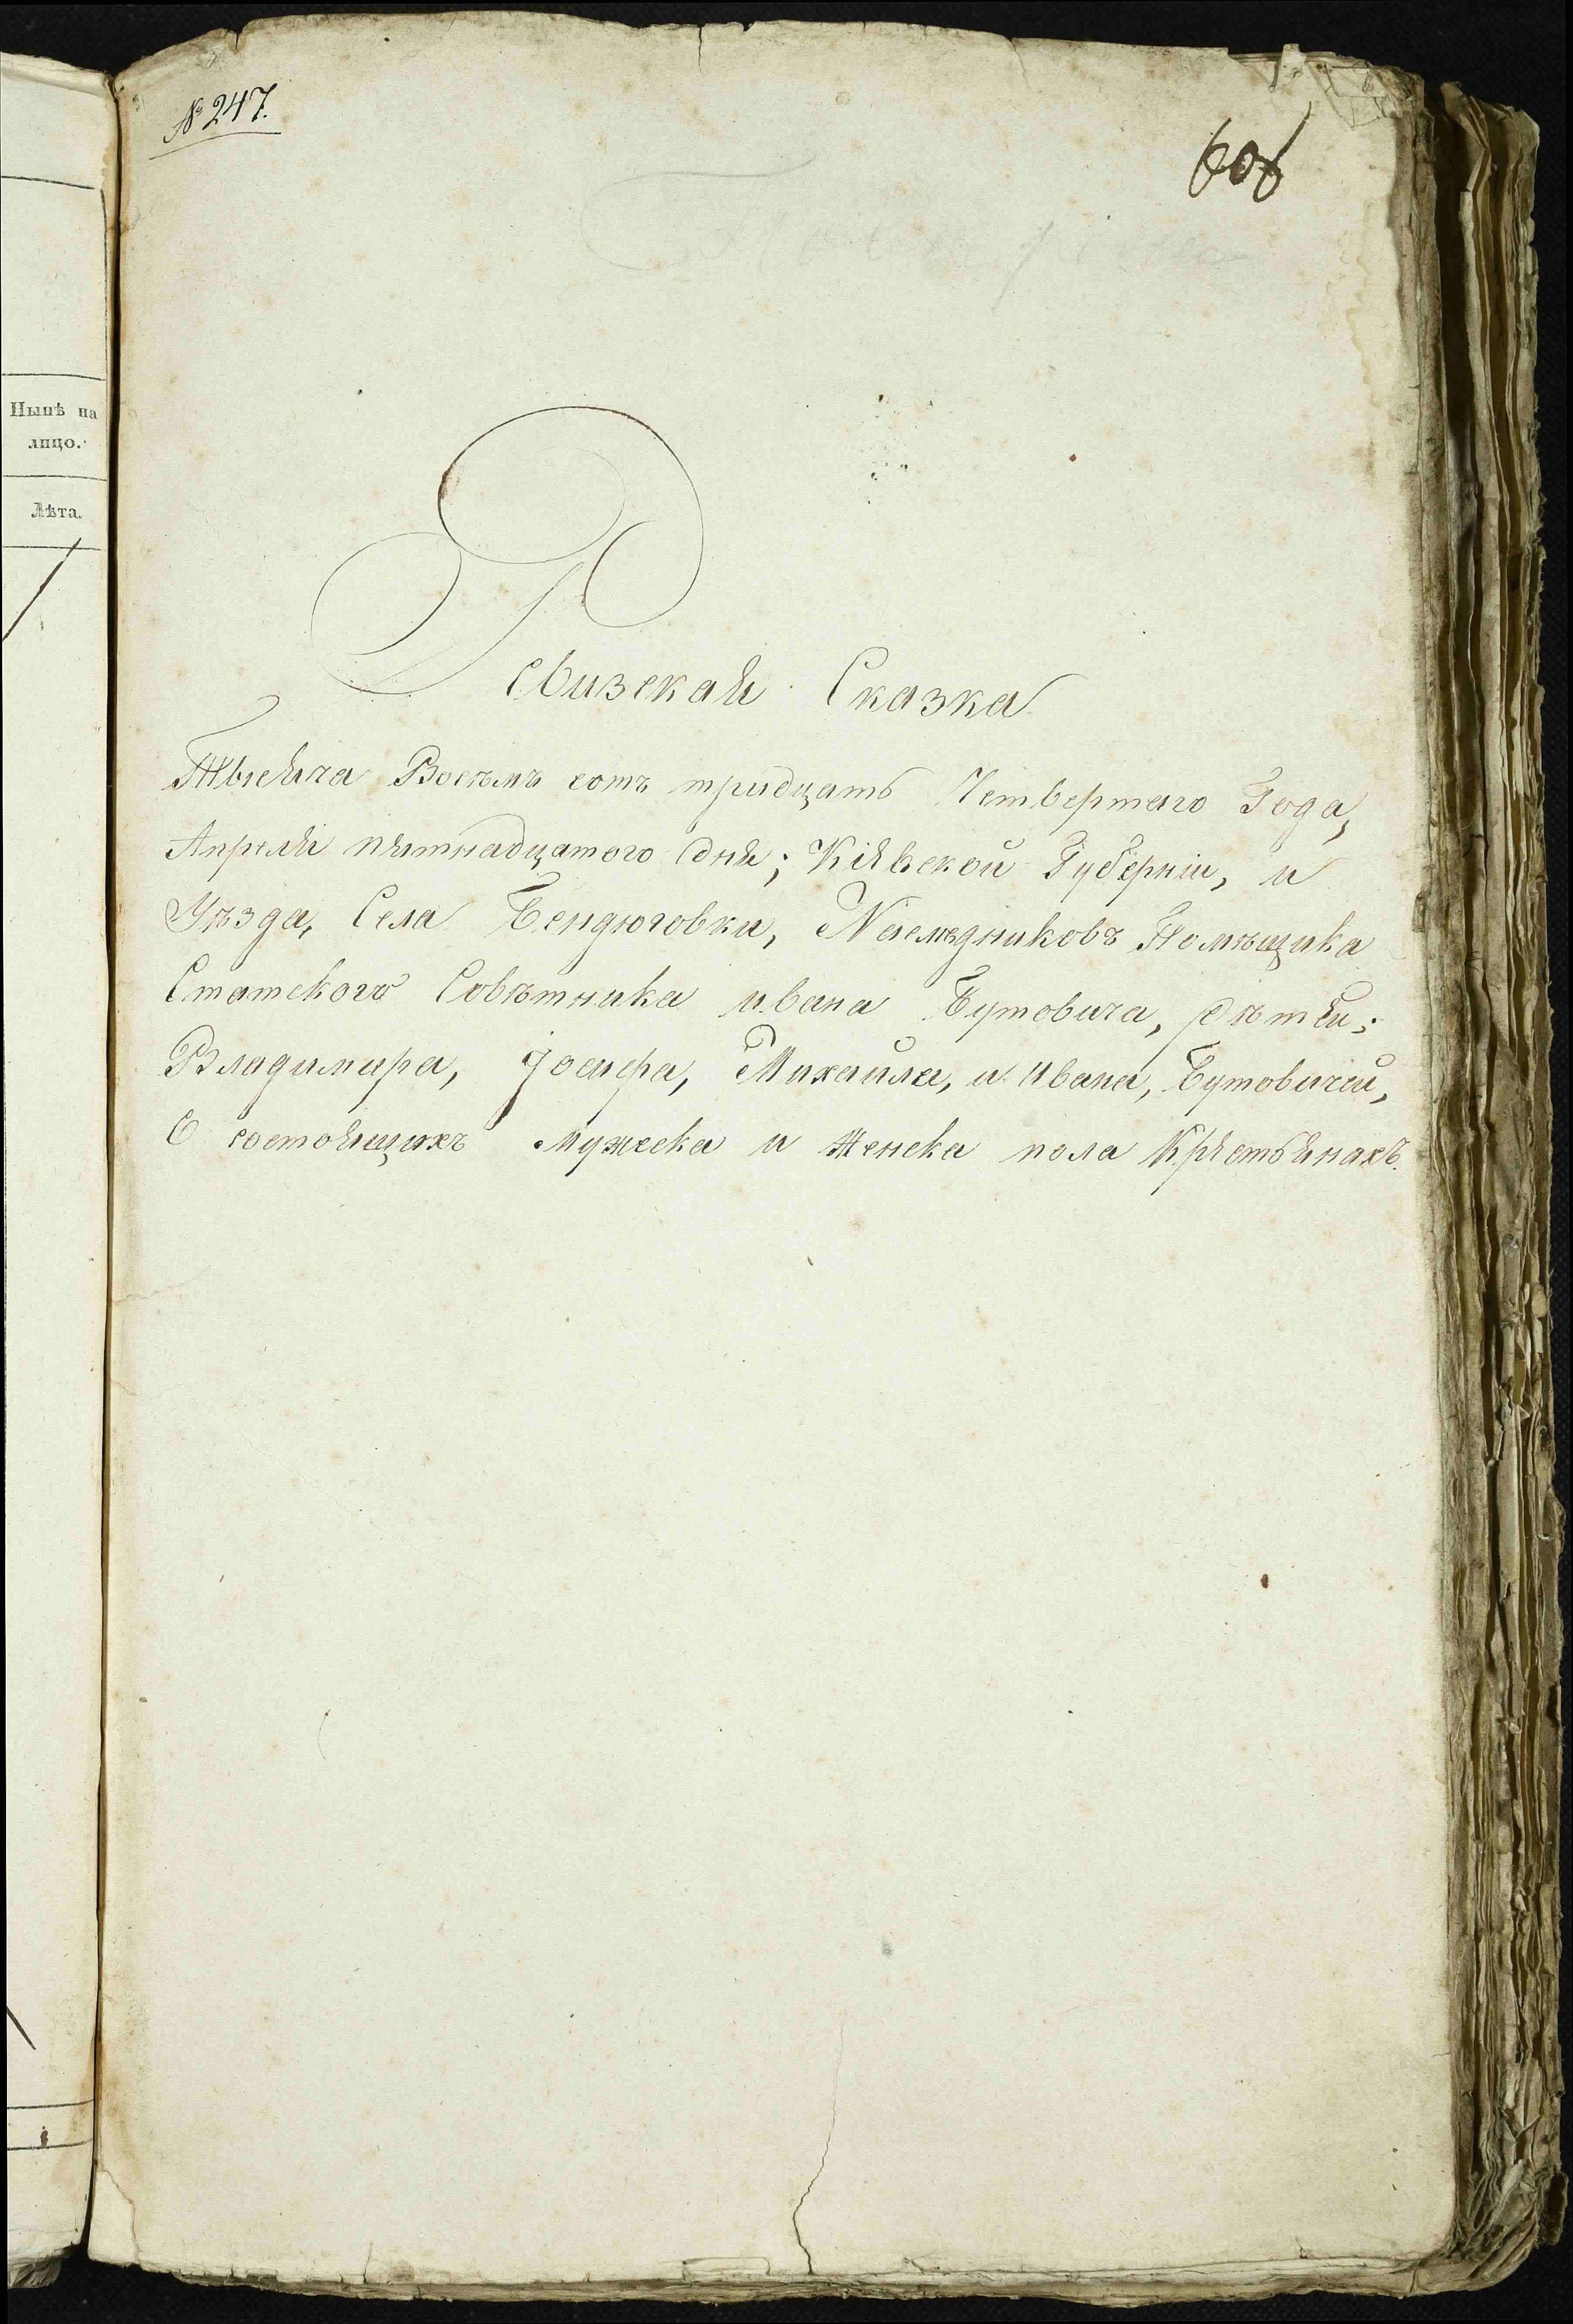 № 247.
606
Нынѣ на
лицо.
Лѣта.
Ревизская Сказка
Тысяча Восѣмъ сотъ тридцать Четвертаго Года,
Апреля пятнадцатого дня; Кіявской Губерніи, и
Уѣзда, Села Бендюговки, Наслѣдниковъ Помѣщика
Статского Совѣтника ивана Бутовича, дѣтяй;
Владимира, Іосифа, Михайла, и Ивана, Бутовичей,
О состоящихъ мужеска и женска пола Крястьянахъ.